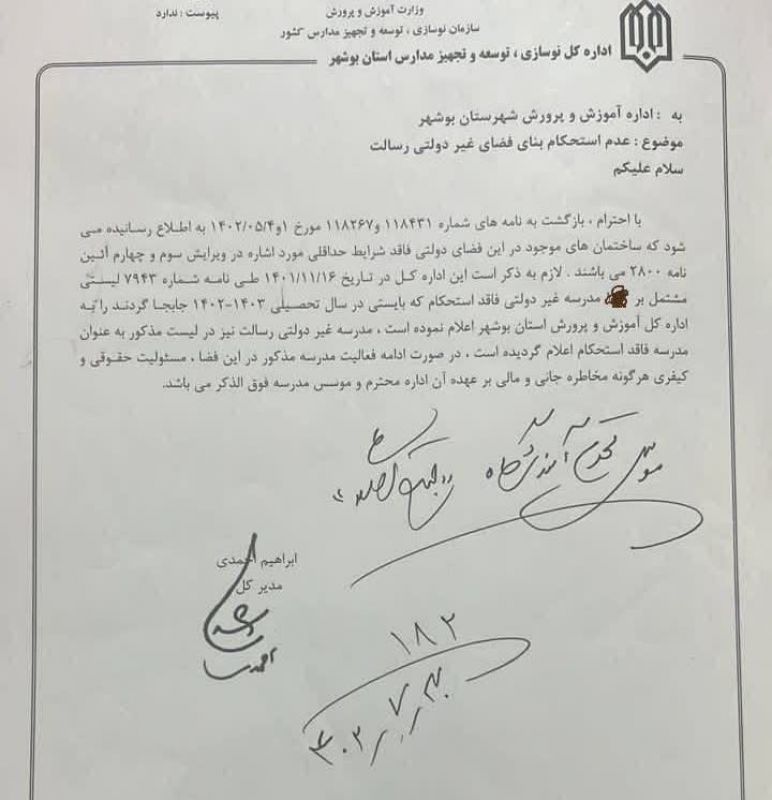 وزارت آموزش و پرورش
پیوست : ندارد
سازمان نوسازی ، توسعه و تجهیز مدارس کشور
اداره کل نوسازی ، توسعه و تجهیز مدارس استان بوشهر
به : اداره آموزش و پرورش شهرستان بوشهر
موضوع : عدم استحکام بنای فضای غیر دولتی رسالت
سلام علیکم
با احترام ، بازگشت به نامه های شماره ۱۱۸۴۳۱ و۱۱۸۲۶۷ مورخ ۱و۱۴۰۲/۰۵/۴ به اطلاع رسانیده می
شود که ساختمان های موجود در این فضای دولتی فاقد شرایط حداقلی مورد اشاره در ویرایش سوم و چهارم آئین
نامه ۲۸۰۰ می باشند . لازم به ذکر است این اداره کل در تاریخ ۱۴۰۱/۱۱/۱۶ طی نامه شماره ۷۹۴۳ لیستی
مشتمل بر مدرسه غیر دولتی فاقد استحکام که بایستی در سال تحصیلی ۱۴۰۳-۱۴۰۲ جابجا گردند را به
اداره کل آموزش و پرورش استان بوشهر اعلام نموده است ، مدرسه غیر دولتی رسالت نیز در لیست مذکور به عنوان
مدرسه فاقد استحکام اعلام گردیده است ، در صورت ادامه فعالیت مدرسه مذکور در این فضا ، مسئولیت حقوقی و
کیفری هرگونه مخاطره جانی و مالی بر عهده آن اداره محترم و موسس مدرسه فوق الذکر می باشد.
موسس محترم آموزشگاه
ابراهیم احمدی
مدیر کل
۱۸۲